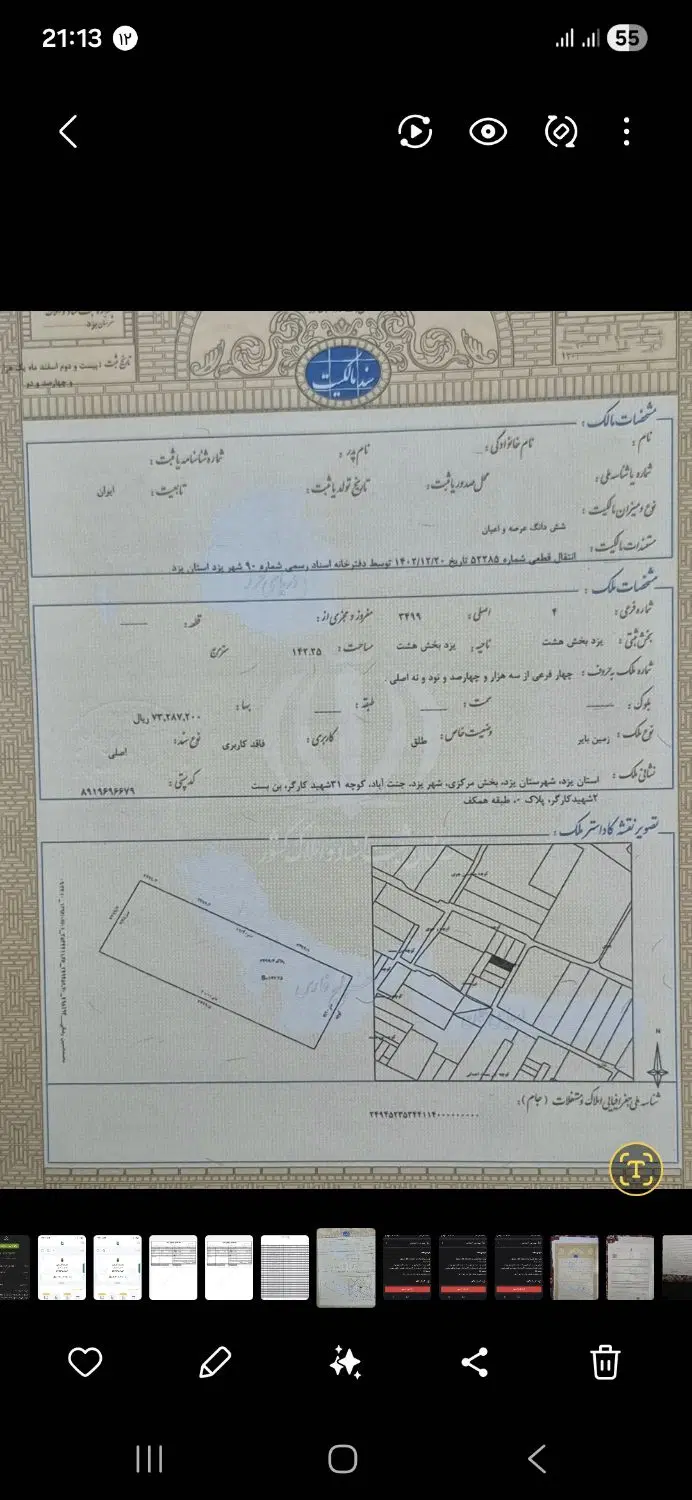 21:13 ۱۲
55
شهرستان یزد
تاریخ ثبت : بیست و دوم اسفند ماه یک هزار
و چهارصد و دو
سند مالکیت
مشخصات مالک :
نام : نام خانوادگی : نام پدر : شماره شناسنامه یا ثبت :
شماره یا شناسه ملی : محل صدور یا ثبت : تاریخ تولد یا ثبت : تابعیت : ایران
نوع و میزان مالکیت : شش دانگ عرصه و اعیان
مستندات مالکیت : انتقال قطعی شماره ۵۲۲۸۵ تاریخ ۱۴۰۲/۱۲/۲۰ توسط دفترخانه اسناد رسمی شماره ۹۰ شهر یزد استان یزد
مشخصات ملک :
شماره فرعی : ۴ اصلی : ۳۴۹۹ مفروز و مجزی از : قطعه :
بخش ثبتی : یزد بخش هشت ناحیه : یزد بخش هشت مساحت : ۱۴۲.۲۵ مترمربع
شماره ملک به حروف : چهار فرعی از سه هزار و چهارصد و نود و نه اصلی .
بلوک : سمت : طبقه : بها : ۷۳,۲۸۷,۲۰۰ ریال
نوع ملک : زمین بایر وضعیت خاص : طلق کاربری : فاقد کاربری نوع سند : اصلی
نشانی ملک : استان یزد، شهرستان یزد، بخش مرکزی، شهر یزد، جنت آباد، کوچه ۳۱شهید کارگر، بن بست کد پستی : ۸۹۱۹۶۹۶۶۷۹
۲شهیدکارگر، پلاک ۰، طبقه همکف
تصویر نقشه کاداستر ملک :
N
شناسه ملی جغرافیایی املاک و مستغلات (جام) :
۲۴۹۴۵۲۳۵۳۴۴۱۱۴۰۰۰۰۰۰۰۰۰
T